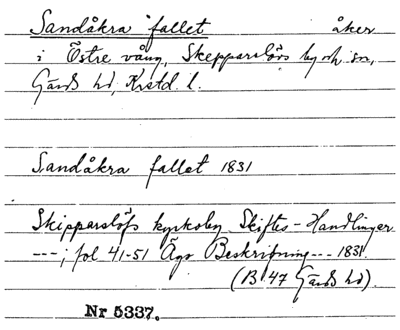 Sandåkra fallet åker
i Östre vång, Skepparslövs by och sn,
Gärds hd, Krstd. l.
Sandåkra fallet 1831
Skipparslöfs kyrkoby Skiftes-Handlingar
---; fol 41-51 Äg. Beskrifning --- 1831.
(B 47 Gärds hd).
Nr 5337.